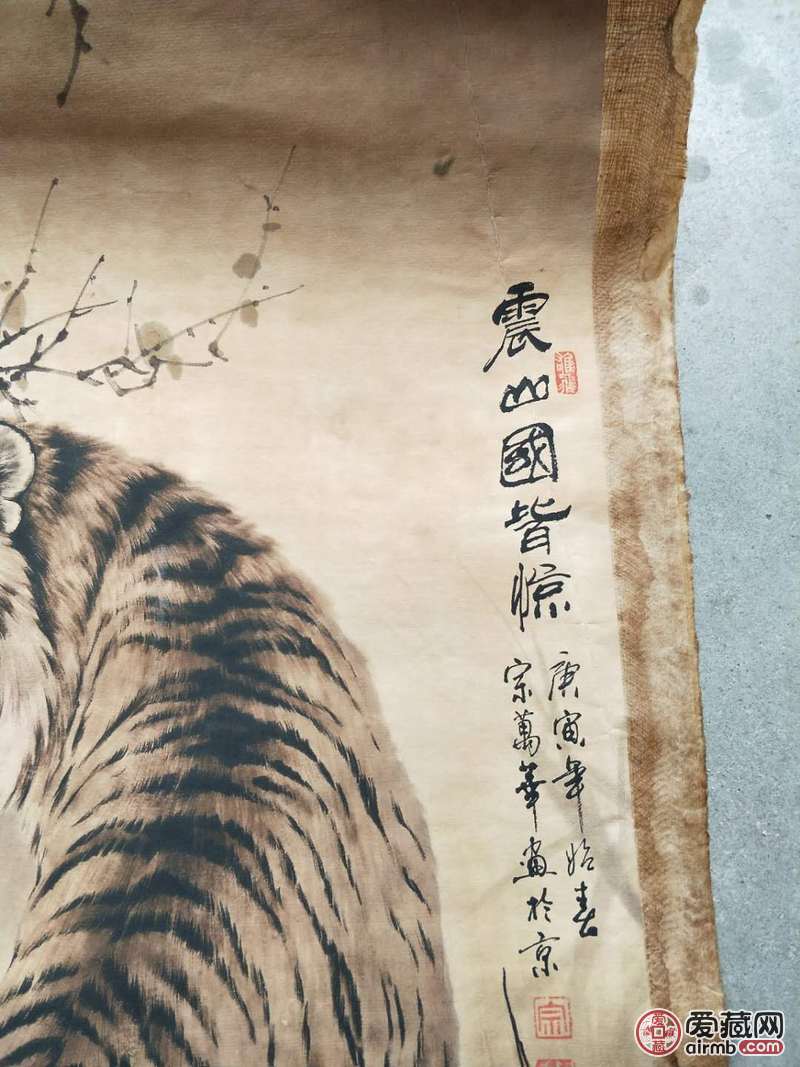 震山國皆惊
庚寅年始春
宗萬華畫於京
宗
爱藏网
airmb.com